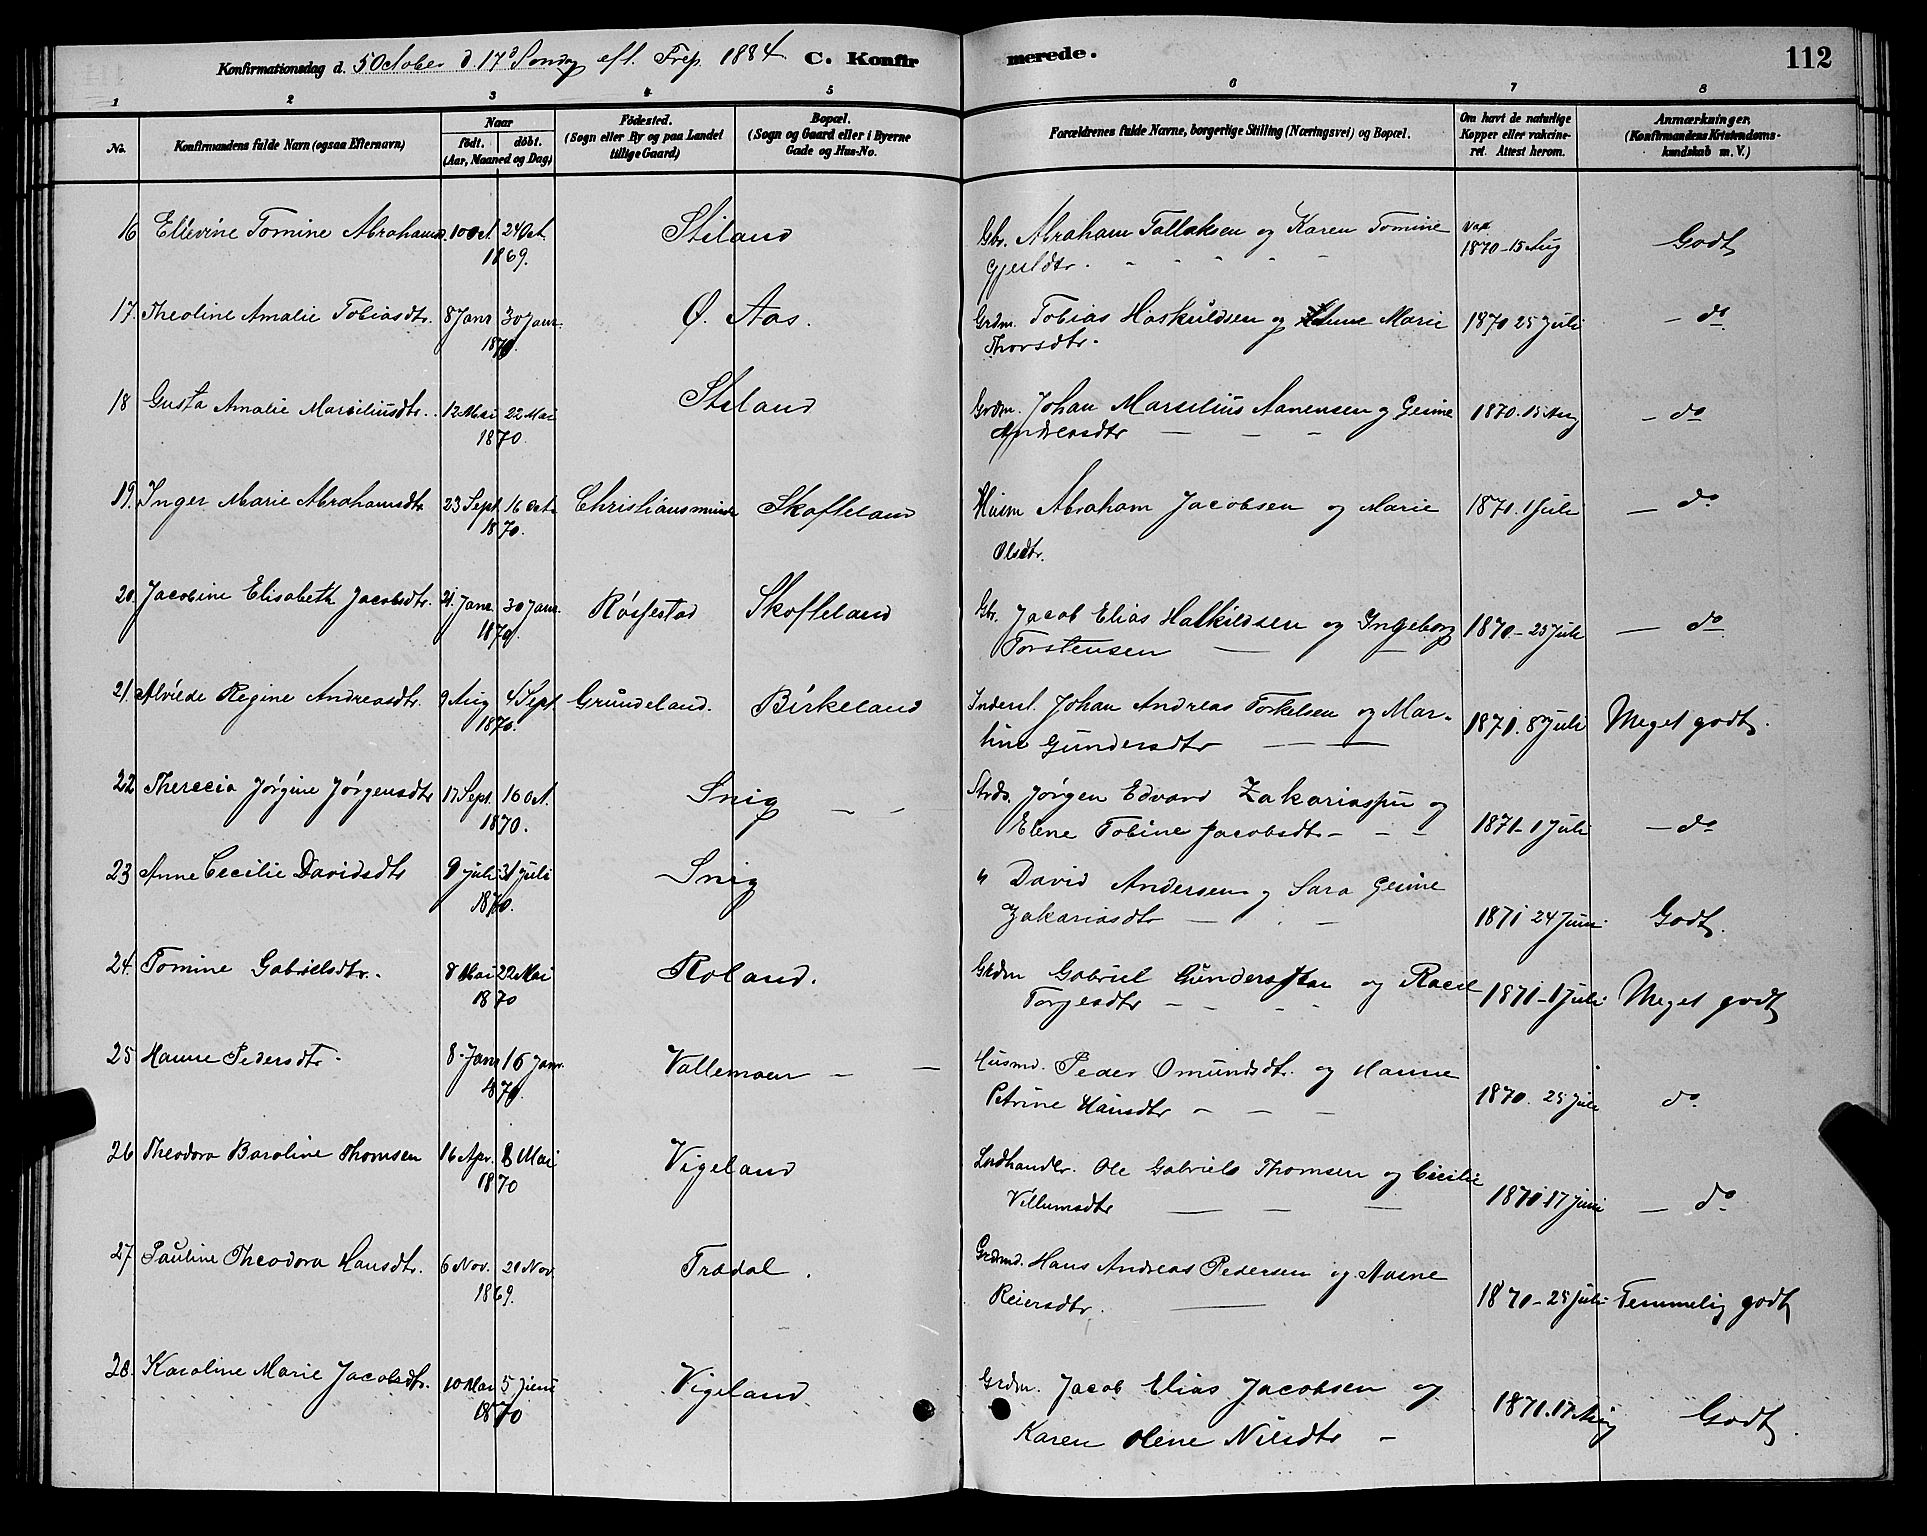 Konfirmationsdag d. 5 October d. 17d Søndag eft. Tref. 1884 C. Konfir merede. 112
1 2 3 4 5 6 7 8
No. Konfirmandens fulde Navn (ogsaa Efternavn) Naar født. døbt. (Aar, Maaned og Dag) Fødested. (Sogn eller By og paa Landet tillige Gaard) Bopæl. (Sogn og Gaard eller i Byerne Gade og Hus-No. Forældrenes fulde Navne, borgerlige Stilling (Næringsvei) og Bopæl. Om havt de naturlige Kopper eller vakcineret. Attest herom. Anmærkninger. (Konfirmandens Kristendomskundskab m. V.)
16 Ellevine Tomine Abrahamsd. 10 Oct. 24 Oct. Stiland Gbr. Abraham Tallaksen og Karen Tomine Vax
1869. Gjertdtr. - - - - - - 1870-15 Aug Godt
17. Theoline Amalie Tobiasdtr. 8 Janr 30 Janr. Ø. Aas. Grdm. Tobias Haskuldsen og Anne Marie 1870 25 Juli — do
1870. Thorsdtr.
18 Gusta Amalie Marciliusdtr. 12 Mai 22 Mai Stiland Grdm. Johan Marselius Aanensen og Gesine 1870. 15 Aug — do
1870. Andreasdtr — - -
19. Inger Marie Abrahamsdtr 23 Sept 16 Octr. Christiansminde Skofteland Husm Abraham Jacobsen og Marie 1871. 1 Juli — do
1870. Olsdtr.
20. Jacobine Elisabeth Jacobsdtr. 21. Janr 30 Janr. Røsfestad Skofteland Gbr. Jacob Elias Halkildsen og Ingeborg 1870-25 Juli — do
1870. Torstensen — —
21. Alviede Regine Andreasdtr. 9 Aug 4 Sept Grundeland. Birkeland Inderst. Johan Andreas Torkelsen og Mar-
1870. tine Gundersdtr — — 1871. 8 Juli Meget godt.
22 Therecia Jørgine Jørgensdtr 17 Sept. 16 Oct. Snig — - Strds. Jørgen Edvard Zakariassen og
1870. Elene Tobine Jacobsdtr - - - 1871-1 Juli — do
23 Anne Cecilie Davidsdtr 9 juli 31 juli Snig " David Andersen og Sara Gesine
1870. Zakariasdtr — - - 1871 24 Juni Godt.
24. Tomine Gabrielsdtr. 8 Mai 22 Mai Roland. Grdm Gabriel Gundersen og Rael
1870 Torjesdtr - - - - 1871-1 Juli Meget godt
25 Hanne Pedersdtr. 8. Janr 16 Janr. Vallemoen — — Husmd. Peder Omundsdtr. og Hanne
1870. Petrine Hansdtr - - - 1870. 25 juli do
26 Theodora Baroline Thomsen 16 Apr. 8 Mai Vigeland Lndhandlr. Ole Gabriels Thomsen og Cecilie
1870 Villumsdtr — — — 1871. 17 juni — do
27. Pauline Theodora Hansdtr. 6 Nov. 21 Nov. Trædal. Grdmd. Hans Andreas Pedersen og Aasne
1869. Reiersdtr. — 1870-25 juli Temmelig godt
28. Karoline Marie Jacobsdtr. 10 Mai 5 juni Vigeland. Grdm. Jacob Elias Jacobsen og
1870 Karen Olene Nilsdtr - 1871. 17 Aug Godt.